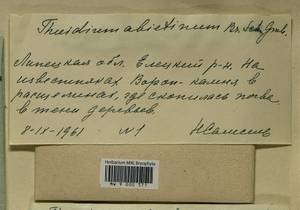 Thuidium abietinum Br. Sch. Gmb.
Липецкая обл. Елецкий р-н. На
известняках Ворон-камня в
расщелинах, где скопилась почва
в тени деревьев.
8-IX-1961 N1
Herbarium MW, Bryophyta
MW 9 000 571